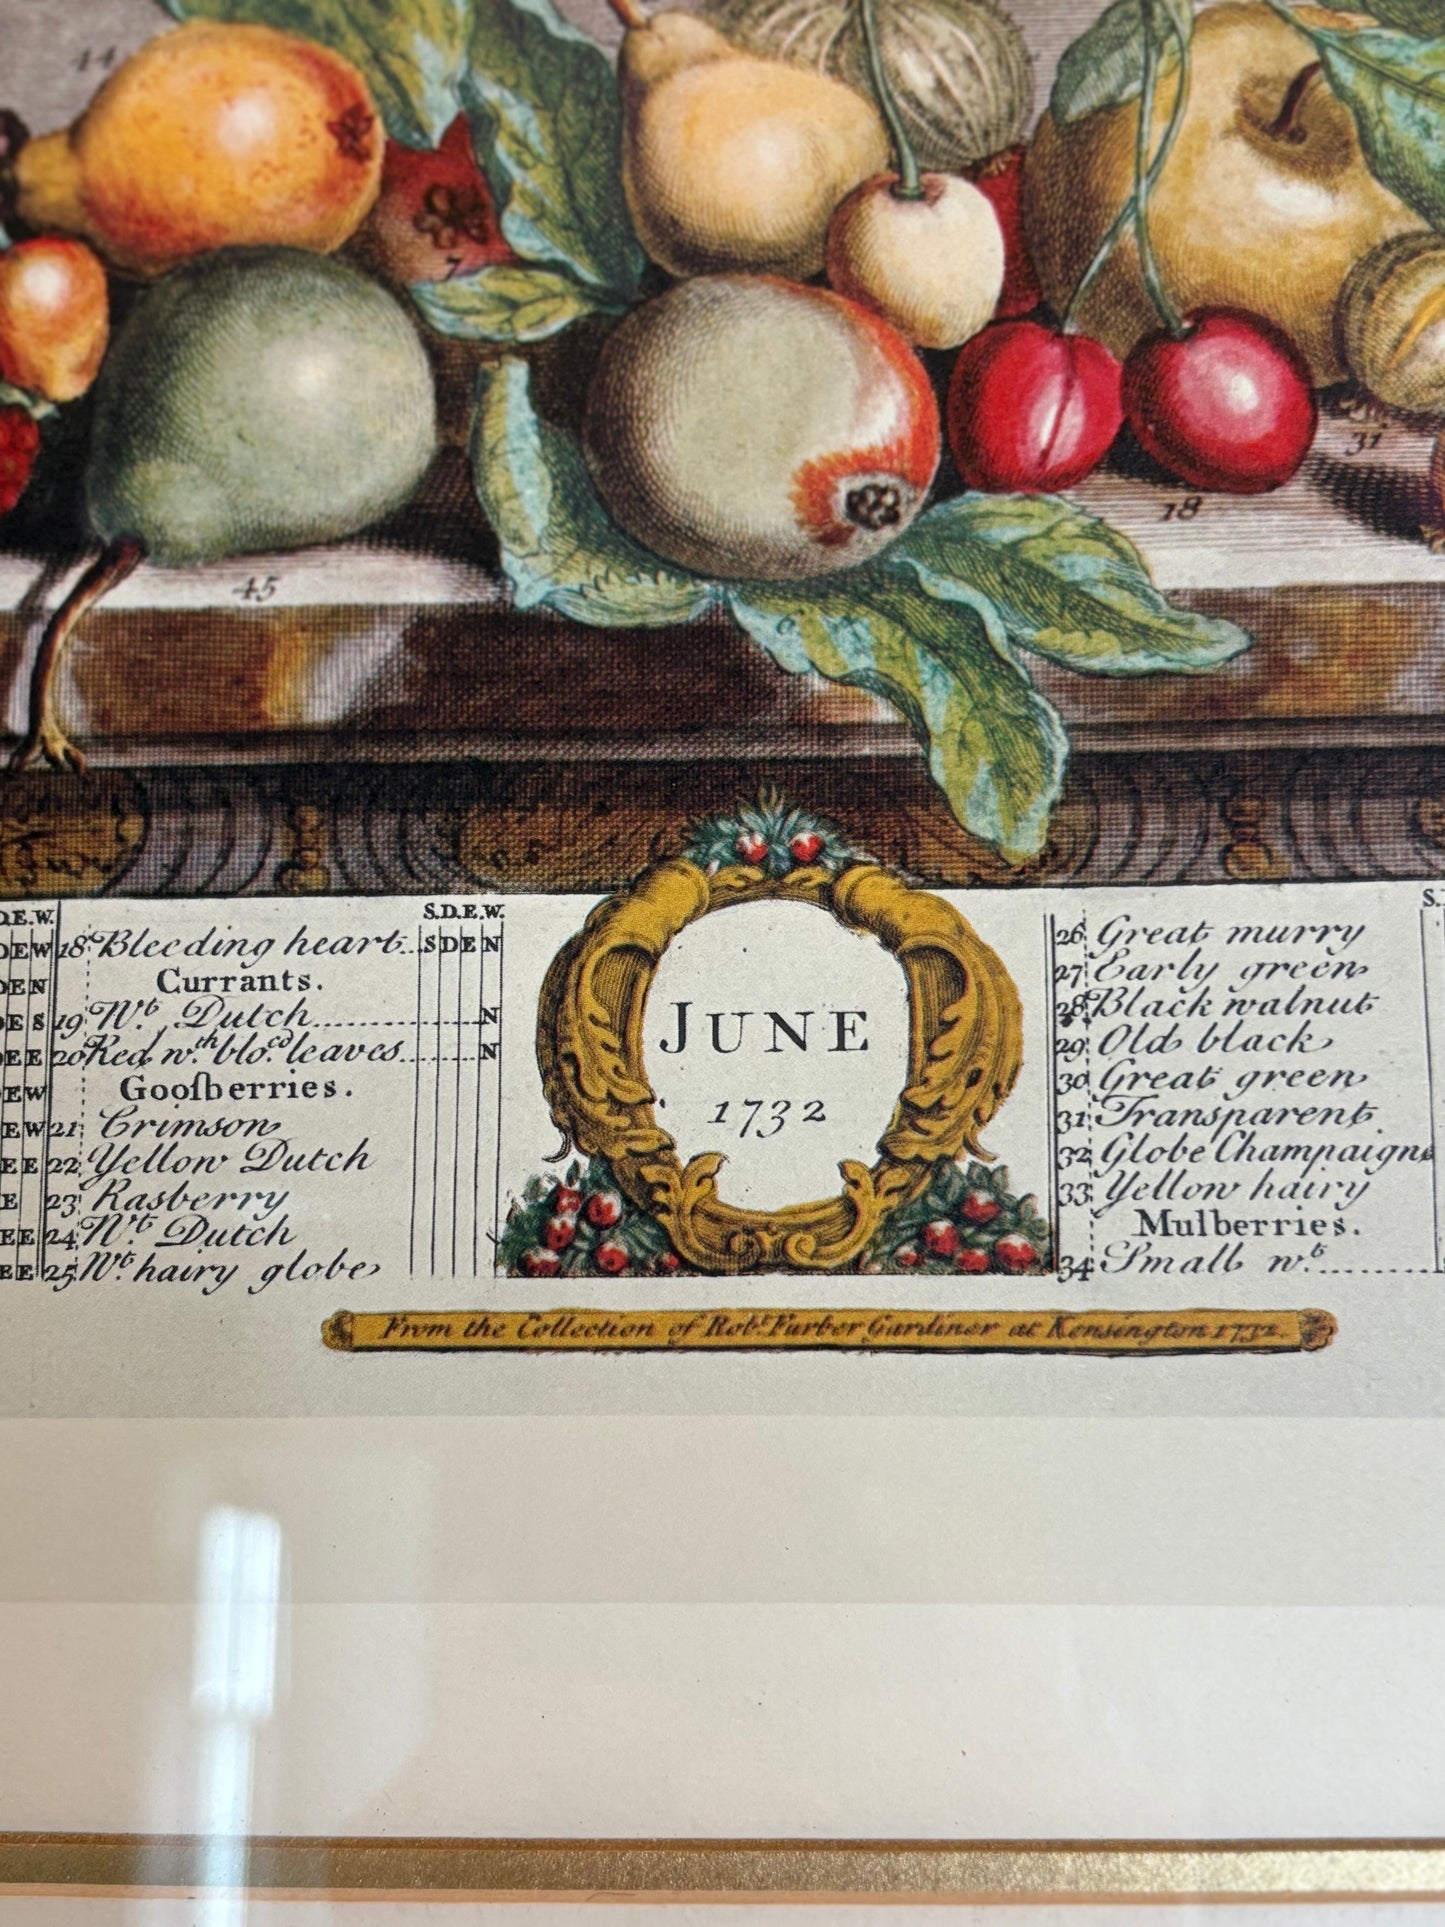 44
7
45
18
31
D.E.W.
S.D.E.W.
DEW 18 Bleeding heart...S D E N
DEN Currants.
DES 19 Wt. Dutch..........N
DEE 20 Red wth. blo.cd leaves......N
EW Gooſberries.
EW 21 Crimson
EE 22 Yellow Dutch
E 23 Rasberry
EE 24 Wt. Dutch
EE 25 Wt. hairy globe
JUNE
1732
S.
26 Great murry
27 Early green
28 Black walnut
29 Old black
30 Great green
31 Transparent
32 Globe Champaigne
33 Yellow hairy
Mulberries.
34 Small wt..........
From the Collection of Robt. Furber Gardiner at Kensington 1732.